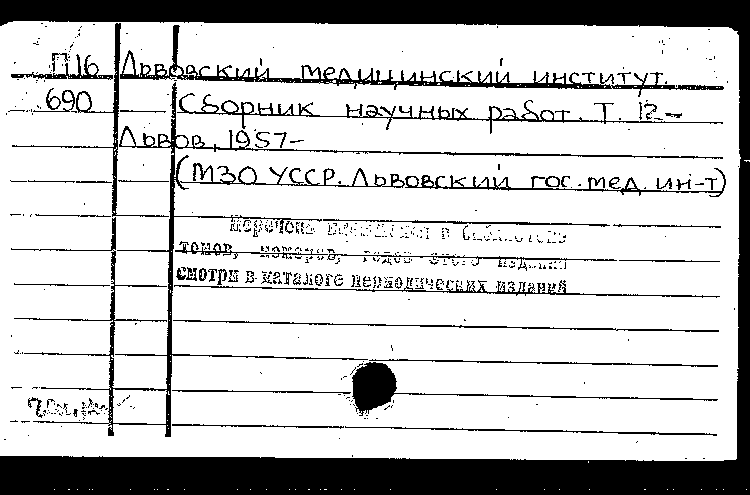 П16 Львовский медицинский институт.
690 Сборник научных работ. Т. 12-
Львов, 1957-
(МЗО УССР. Львовский гос. мед. ин-т)
Перечень имеющихся в библиотеке
томов, номеров, годов этого издания
смотри в каталоге периодических изданий